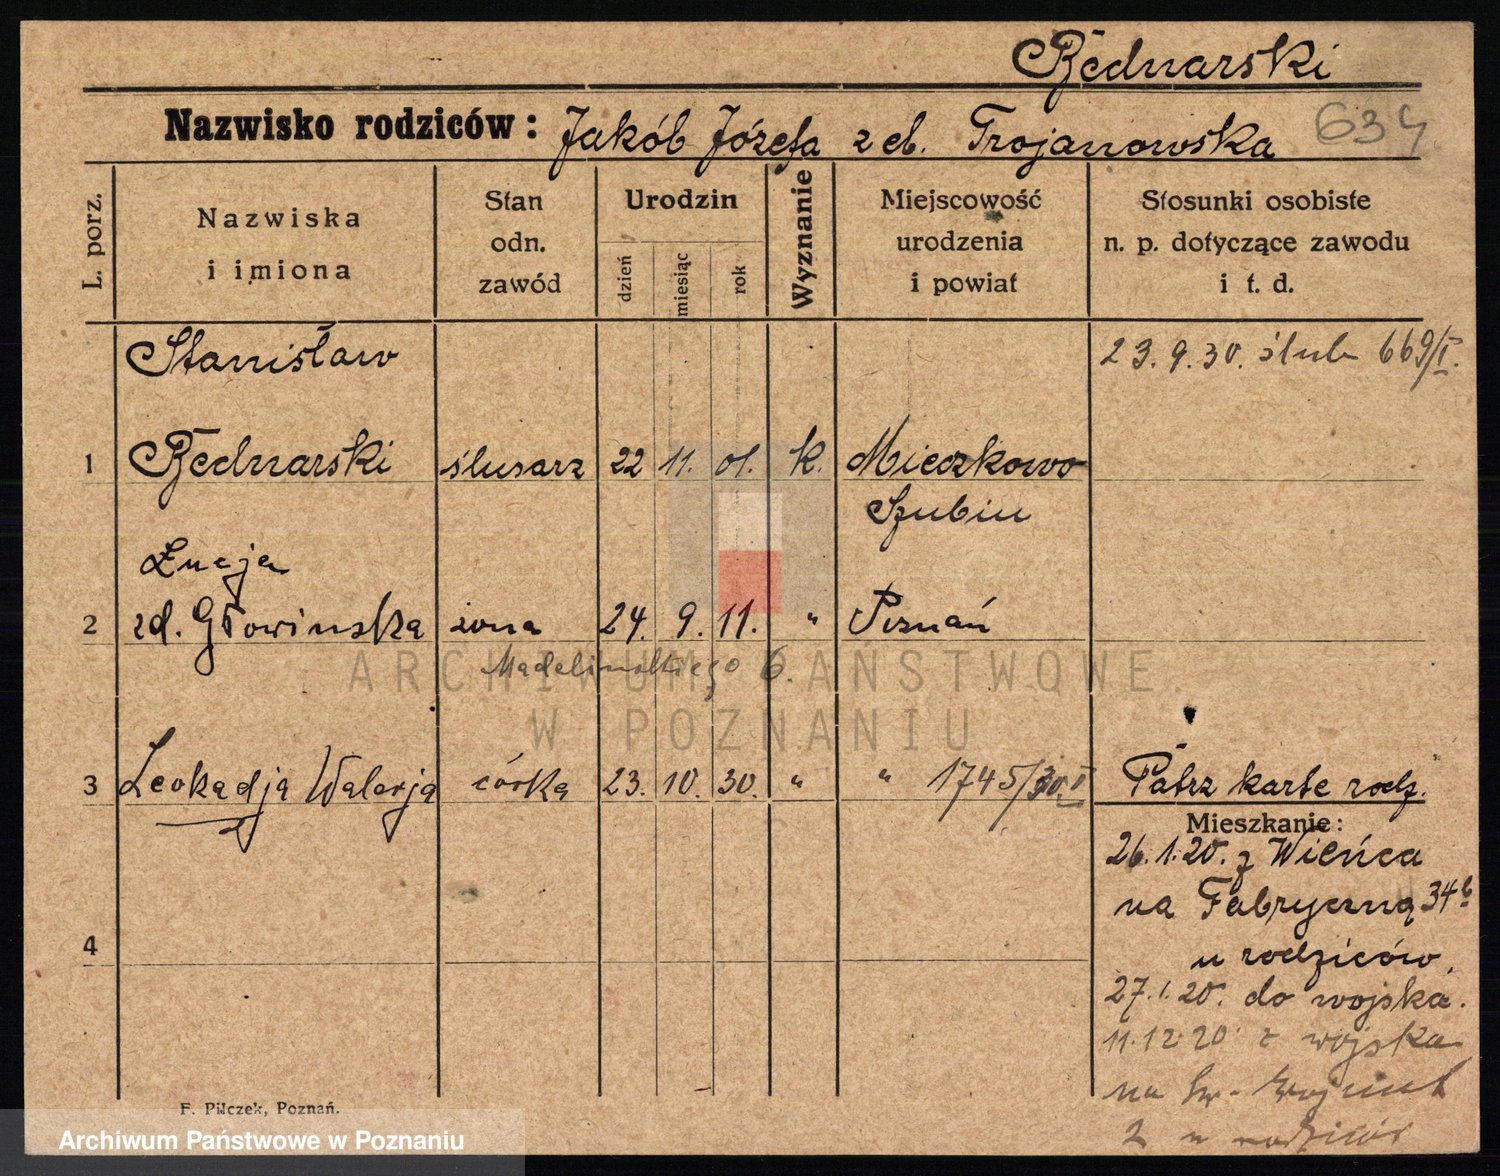 Bednarski
Nazwisko rodziców: Jakób Józefa z d. Trojanowska 634
L. porz.
Nazwiska
i imiona
Stan
odn.
zawód
Urodzin
dzień
miesiąc
rok
Wyznanie
Miejscowość
urodzenia
i powiat
Stosunki osobiste
n. p. dotyczące zawodu
i t. d.
Stanisław 23.9.30. ślub 669/I.
1 Bednarski ślusarz 22 11. 01. k. Mieczkowo
Szubin
Łucja
2 zd. Głowinska żona 24. 9. 11. " Poznań
Madalinskiego 6.
3 Leokadja Walerja córka 23. 10. 30. " " 1745/30. I Patrz karte rodz.
Mieszkanie:
26.1.20. z Wieńca
na Fabryczną 34b
u rodziców.
4
27.1.20. do wojska.
11.12.20. z wojska
na Św.
2 u rodziców
F. Pilczek, Poznań.
ARCHIWUM PAŃSTWOWE
W POZNANIU
Archiwum Państwowe w Poznaniu